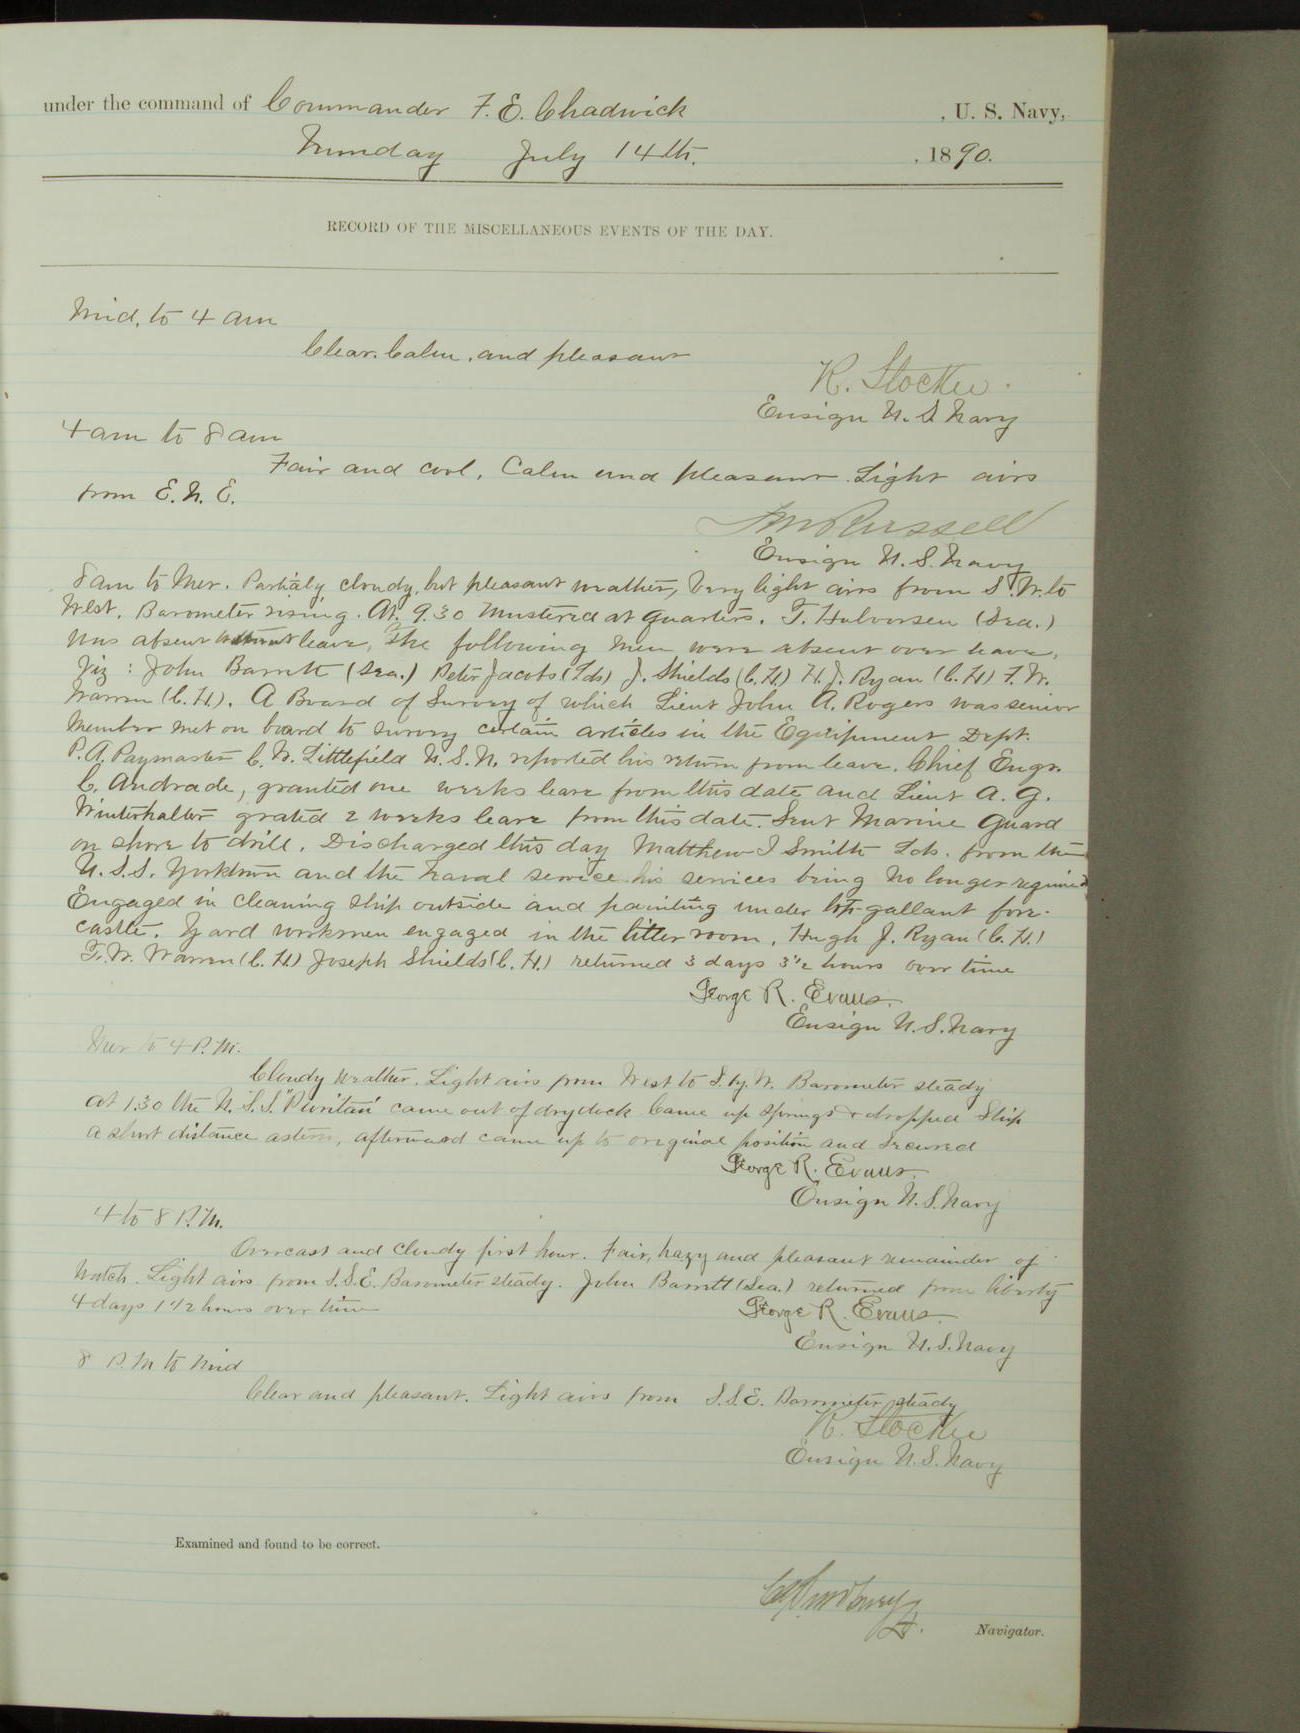 under the command of Commander F. E. Chadwick , U. S. Navy,
Monday July 14th. , 1890.
RECORD OF THE MISCELLANEOUS EVENTS OF THE DAY.
Mid, to 4 am
Clear. Calm, and pleasant
R. Stocker
Ensign U. S. Navy
4 am to 8 am
Fair and cool, Calm and pleasant. Light airs
from E. N. E.
Russell
Ensign U. S. Navy
8 am to Mer. Partialy cloudy, but pleasant weather, Very light airs from S. W. to
West. Barometer rising. At. 9.30 mustered at quarters. T. Halvorsen (Sea.)
was absent without leave, The following men were absent over leave,
Viz: John Barrett (Sea.) Peter Jacobs (Lds) J. Shields (C. H.) H. J. Ryan (C. H) F. W.
Warren (C. H.). A Board of Survey of which Lieut John A. Rogers was senior
member met on board to survey certain articles in the Equipment Dept.
P. A. Paymaster C. W. Littlefield U. S. N. reported his return from leave. Chief Engr.
C. Andrade, granted one weeks leave from this date and Lieut A. G.
Winterhalter grated 2 weeks leave from this date. Sent Marine Guard
on shore to drill. Discharged this day Matthew J Smith Lds. from the
U. S. S. Yorktown and the Naval service his services being no longer required
Engaged in cleaning ship outside and painting under top-gallant fore-
castle. Yard workmen engaged in the room, Hugh J. Ryan (C. H.)
F. W. Warren (C. H.) Joseph Shields (C. H.) returned 3 days 3 1/2 hours over time
George R. Evans.
Ensign U. S. Navy
Mer to 4 P. M.
Cloudy weather. Light airs from West to S. by W. Barometer steady
at 1.30 the U. S. S. "Puritan" came out of drydock Came up springs & dropped Ship
a short distance astern, afterward came up to original position and secured
George R. Evans.
Ensign U. S. Navy
4 to 8 P. M.
Overcast and Cloudy first hour. Fair, hazy and pleasant remainder of
Watch. Light airs from S. S. E. Barometer steady. John Barrett (Sea.) returned from liberty
4 days 1 1/2 hours over time
George R. Evans.
Ensign U. S. Navy
8 P. M to Mid
Clear and pleasant. Light airs from S. S. E. Barometer steady
R. Stocker
Ensign U. S. Navy
Examined and found to be correct.
Navigator.